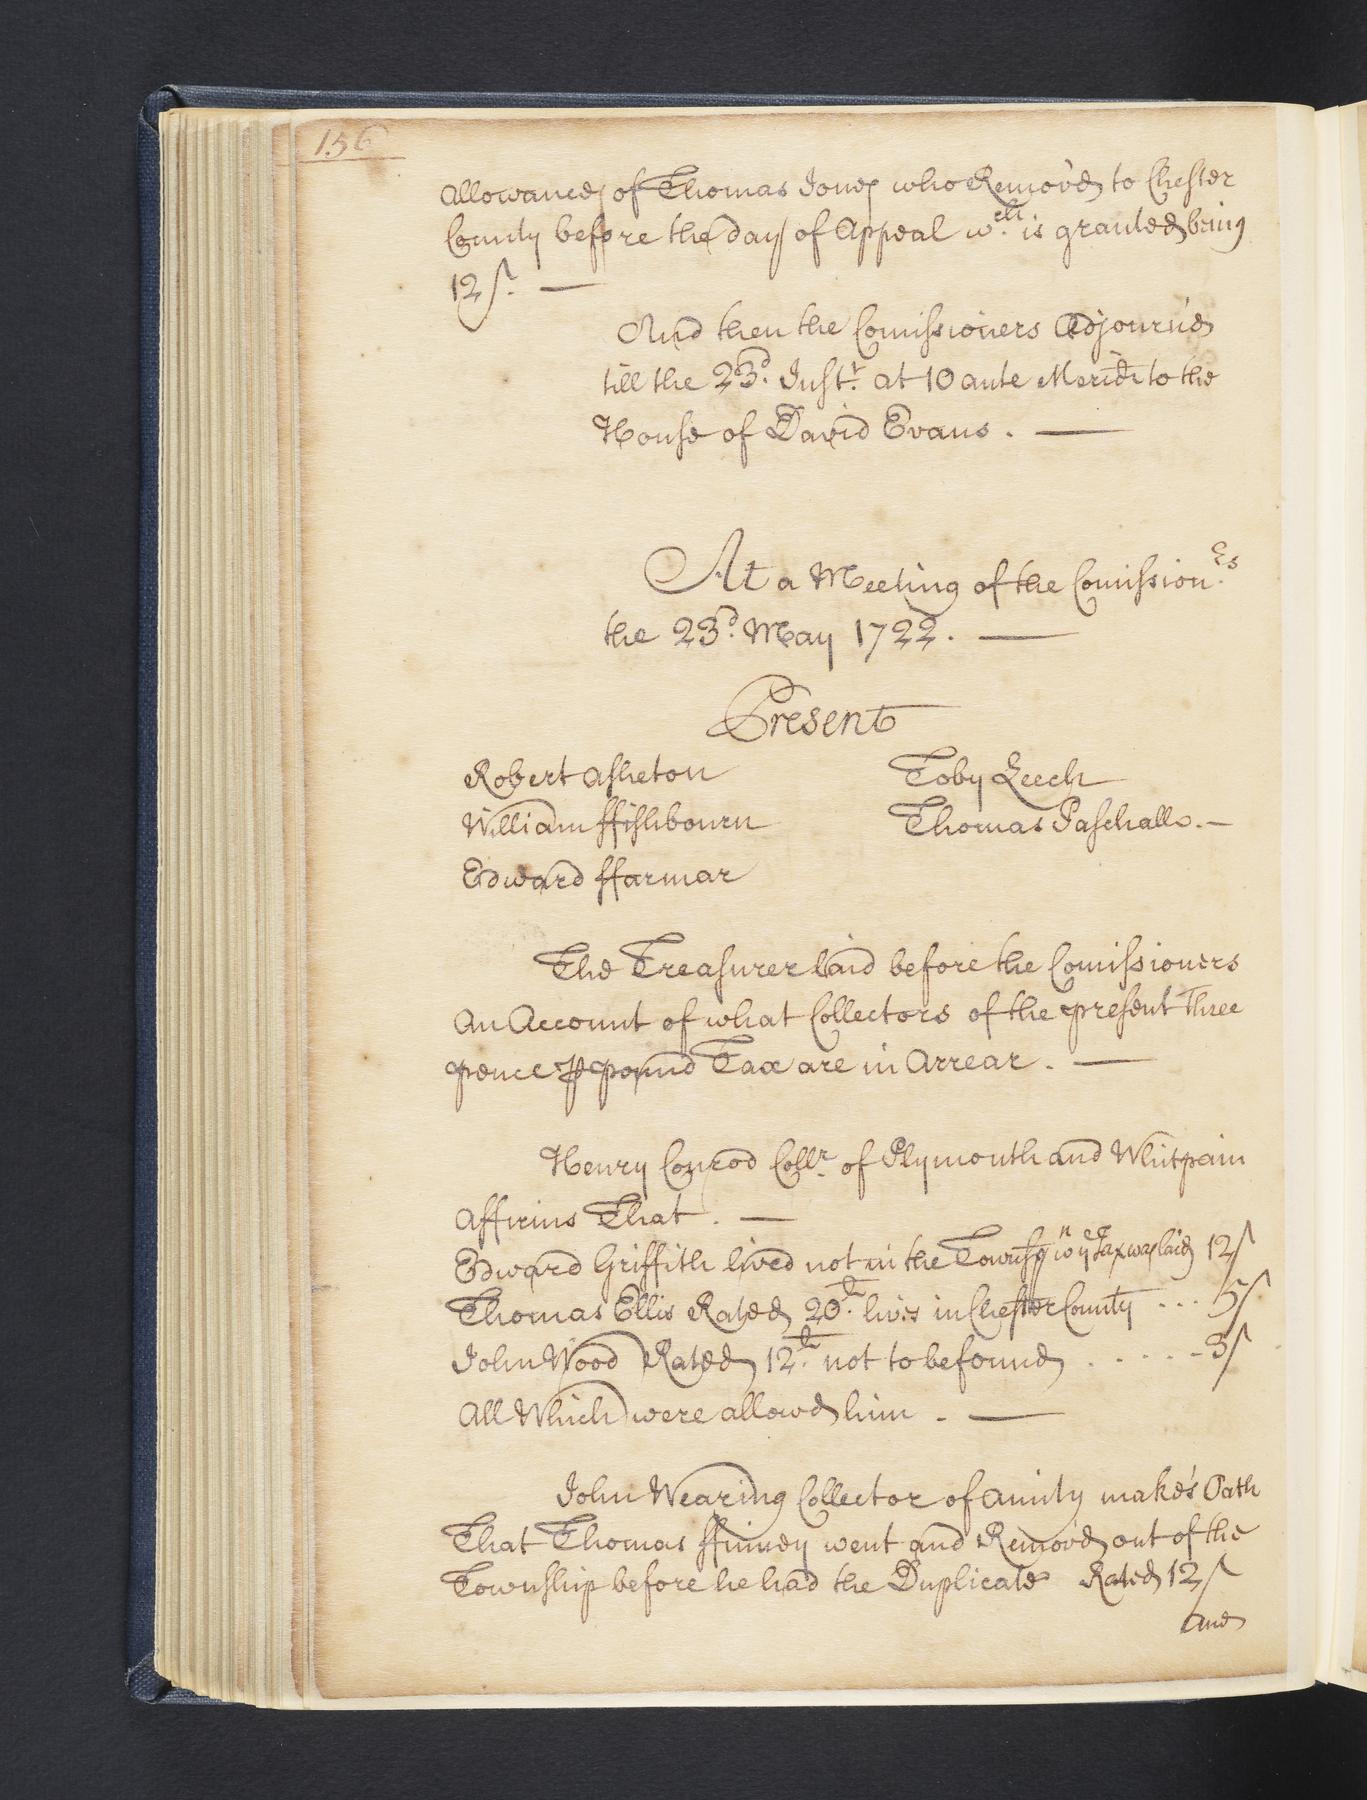 156
Allowance of Thomas Jones who Remov'd to Chester
County before the day of Appeal w.ch is granted being
12/. —
And then the Comissioners Adjourn'd
till the 23.d Inst.t at 10 ante Merid: to the
House of David Evans. —
At a Meeting of the Comission.rs
the 23.d May 1722. —
Present
Robert Asheton
Toby Leech
William ffishbourn
Thomas Paschall. —
Edward ffarmar
The Treasurer laid before the Comissioners
An Account of what Collectors of the present Three
pence ⅌ pound Tax are in Arrear. —
Henry Conrod Coll.r of Plymouth and Whitpain
Affirms That. —
Edward Griffith lived not in the Townsp wn ye Tax was laid 12/
Thomas Ellis Rated 20.£ lives in Chester County ... 5/
John Wood Rated 12.£ not to be found ..... 3/
All Which were allowd him. —
John Wearing Collector of Amity make's Oath
That Thomas ffinney went and Remov'd out of the
Township before he had the Duplicate Rated 12/
and